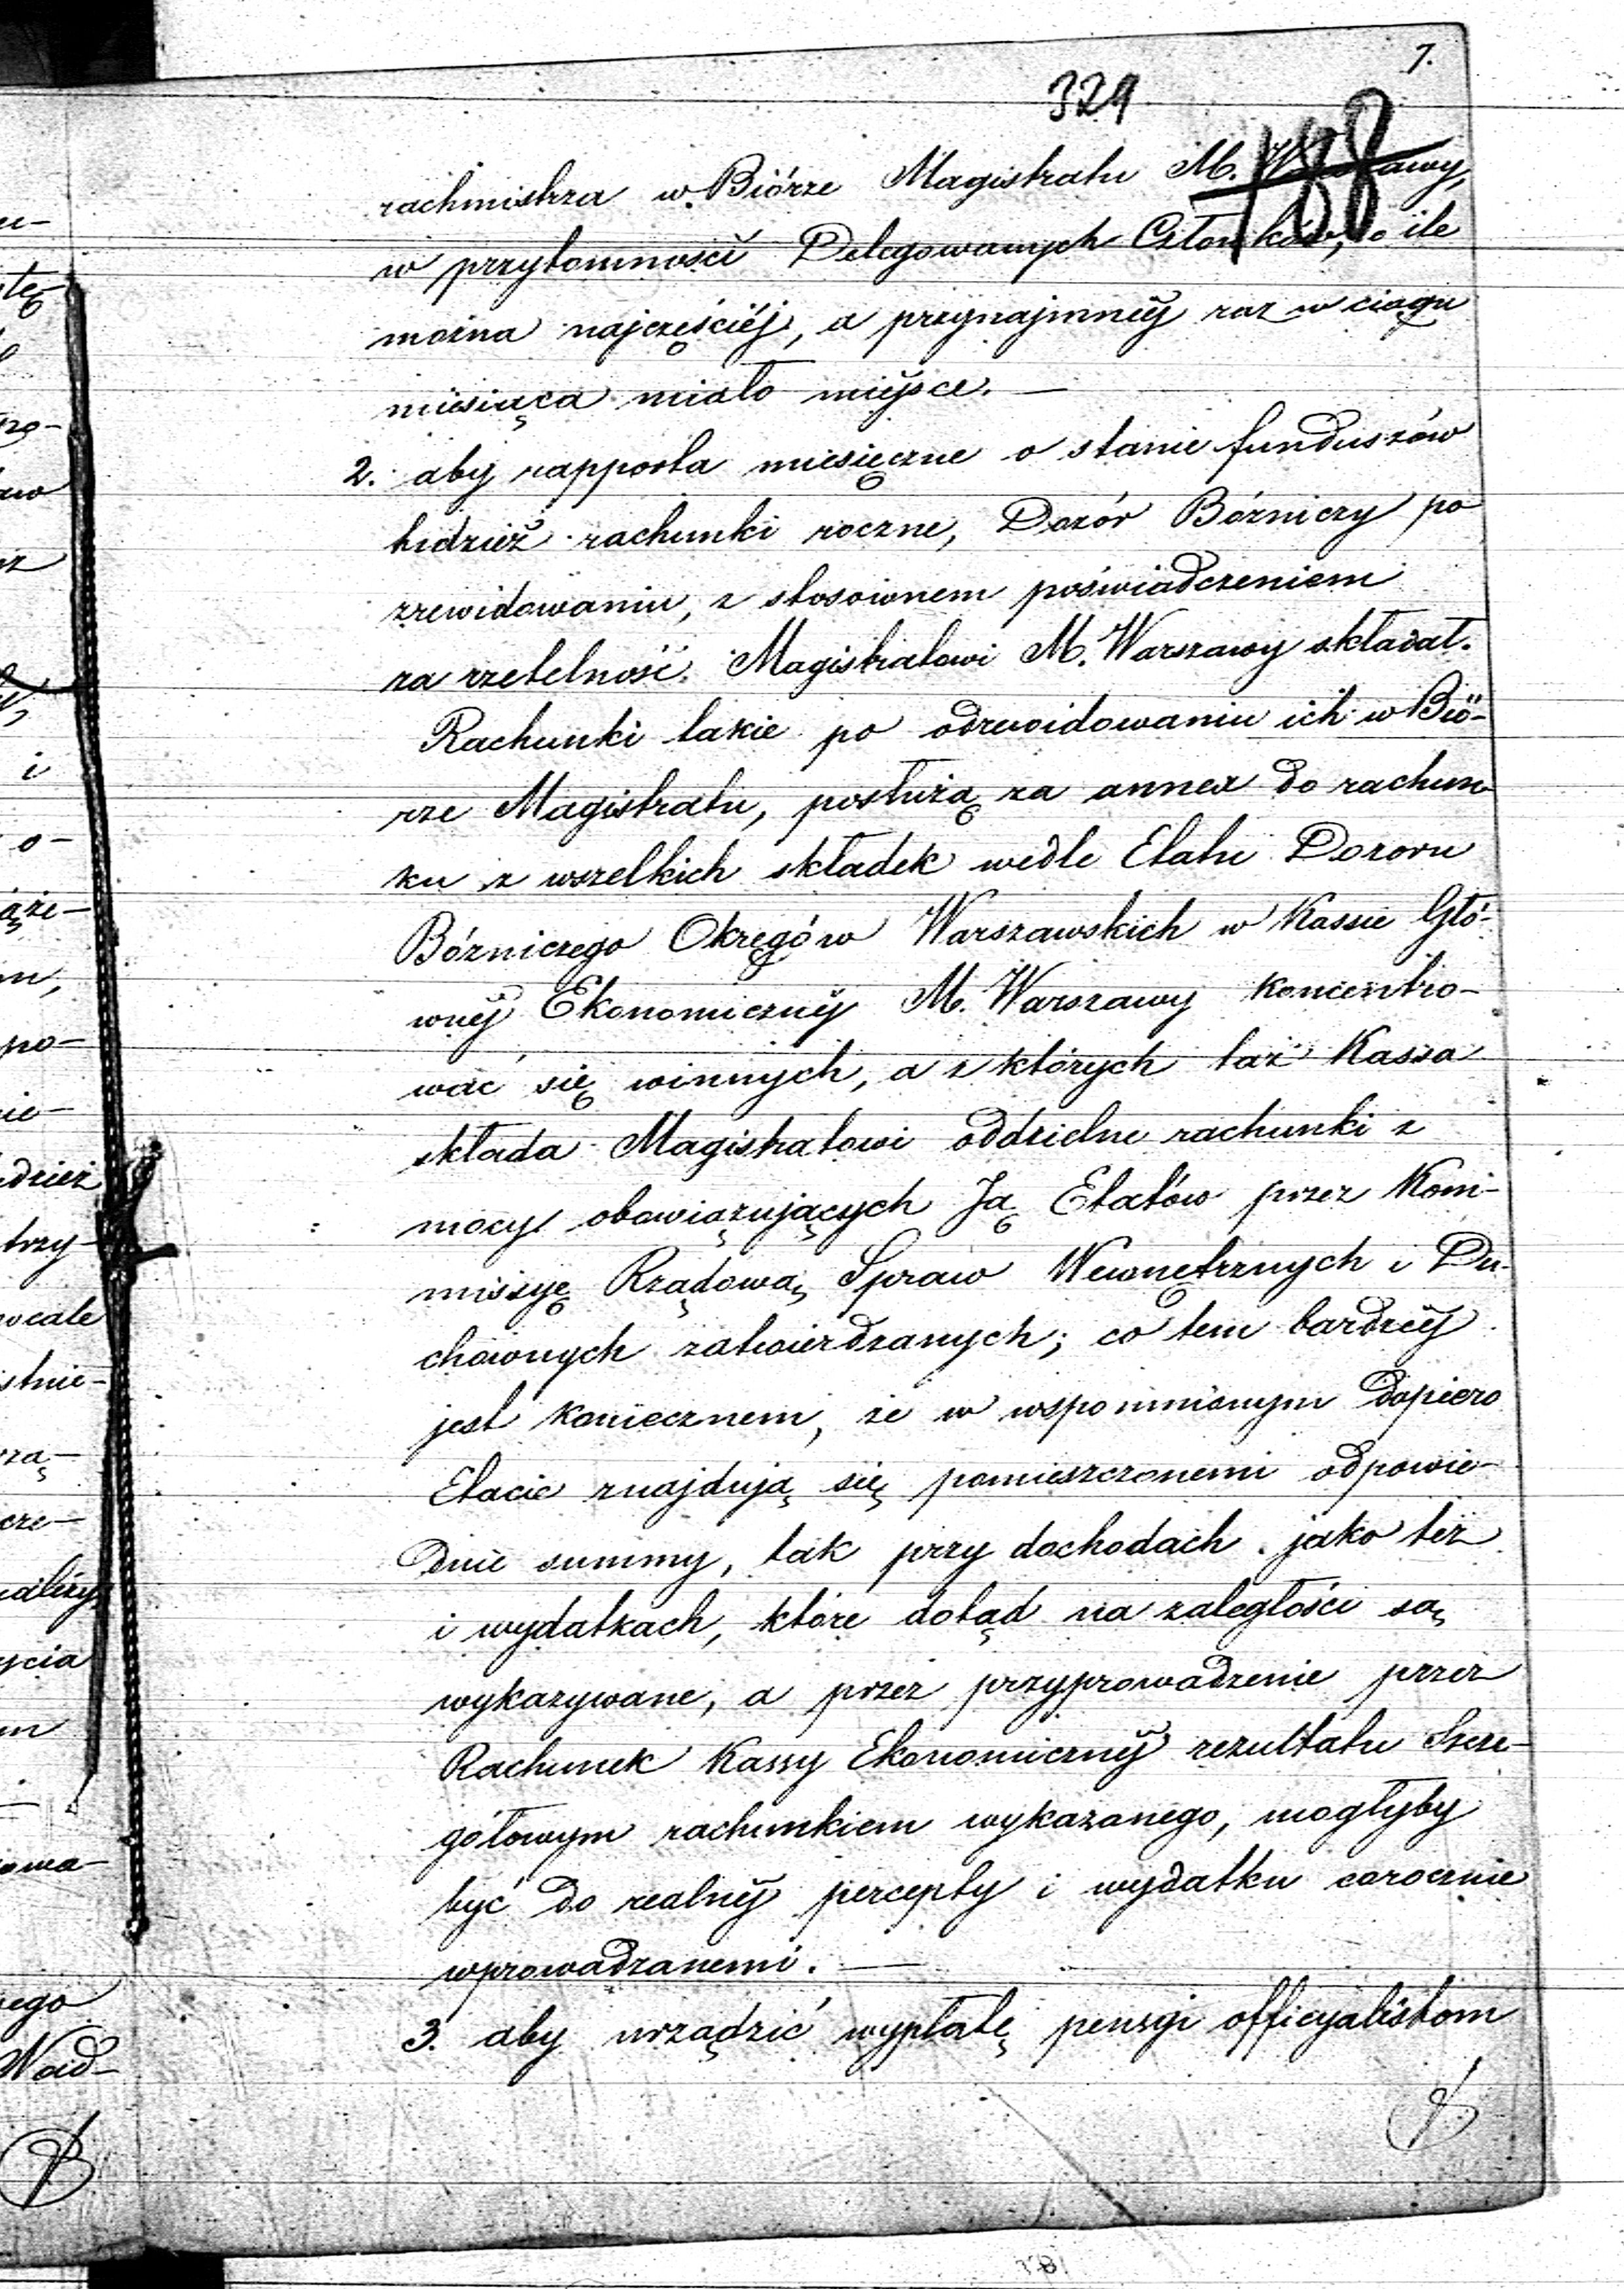 7.
329
188
rachmistrza w Biórze Magistratu M. Warszawy,
w przytomności Delegowanych Członków, o ile
można najczęściéj, a przynajmniéj raz w ciągu
miesiąca miało miéjsce. —
2. aby rapporta miesięczne o stanie funduszów
tudzież rachunki roczne, Dozór Bózniczy po
zrewidowaniu, z stosownem poświadczeniem
za rzetelność Magistratowi M. Warszawy składał.
Rachunki takie po odrewidowaniu ich w Bió-
rze Magistratu, posłużą za annex do rachun-
ku z wszelkich składek wedle Etatu Dozoru
Bózniczego Okręgów Warszawskich w Kassie Głó-
wnéj Ekonomicznéj M. Warszawy koncentro-
wać się winnych, a z których taż Kassa
składa Magistratowi oddzielne rachunki z
mocy obowiązujących Ją Etatów przez Kom-
missyę Rządową Spraw Wewnętrznych i Du-
chownych zatwierdzanych; co tem bardziéj
jest koniecznem, że w wspomnionym dopiero
Etacie znajdują się pomieszczonemi odpowie-
dnie summy, tak przy dochodach jako też
i wydatkach, które dotąd na zaległości są
wykazywane, a przez przyprowadzenie przez
Rachunek Kassy Ekonomicznéj rezultatu Szcze-
gółowym rachunkiem wykazanego, mogłyby
być do realnéj percepty i wydatku corocznie
wprowadzanemi. —
3. aby urządzić wypłatę pensyi officyalistom